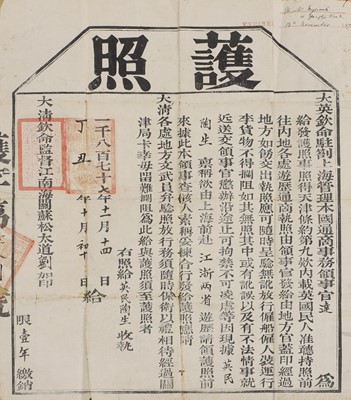 護照
大英欽命駐劄上海管理本國通商事務領事官達 為
給發護照事照得天津條約第九款內載英國民人准聽持照前
往內地各處遊歷通商執照由領事官發給由地方官蓋印經過
地方如飭交出執照應可隨時呈驗無訛放行僱船僱人裝運行
李貨物不得攔阻如其無照其中或有訛誤以及有不法情事就
近送交領事官懲辦沿途止可拘禁不可凌虐等因現據 英民
蘭生 稟稱欲由上海前赴 江浙兩省 遊歷請領護照前
來據此本領事查該人素稱妥練合行發給護照應請
大清各處地方文武員弁驗照放行務須隨時保衛以禮相待經過關
津局卡幸毋留難攔阻為此給與護照須至護照者
右照給英民蘭生收執
一千八百七十七年十一月十四日
丁丑 年十月初十日 給
大清欽命監督江南海關蘇松太道劉加印
限壹年繳銷